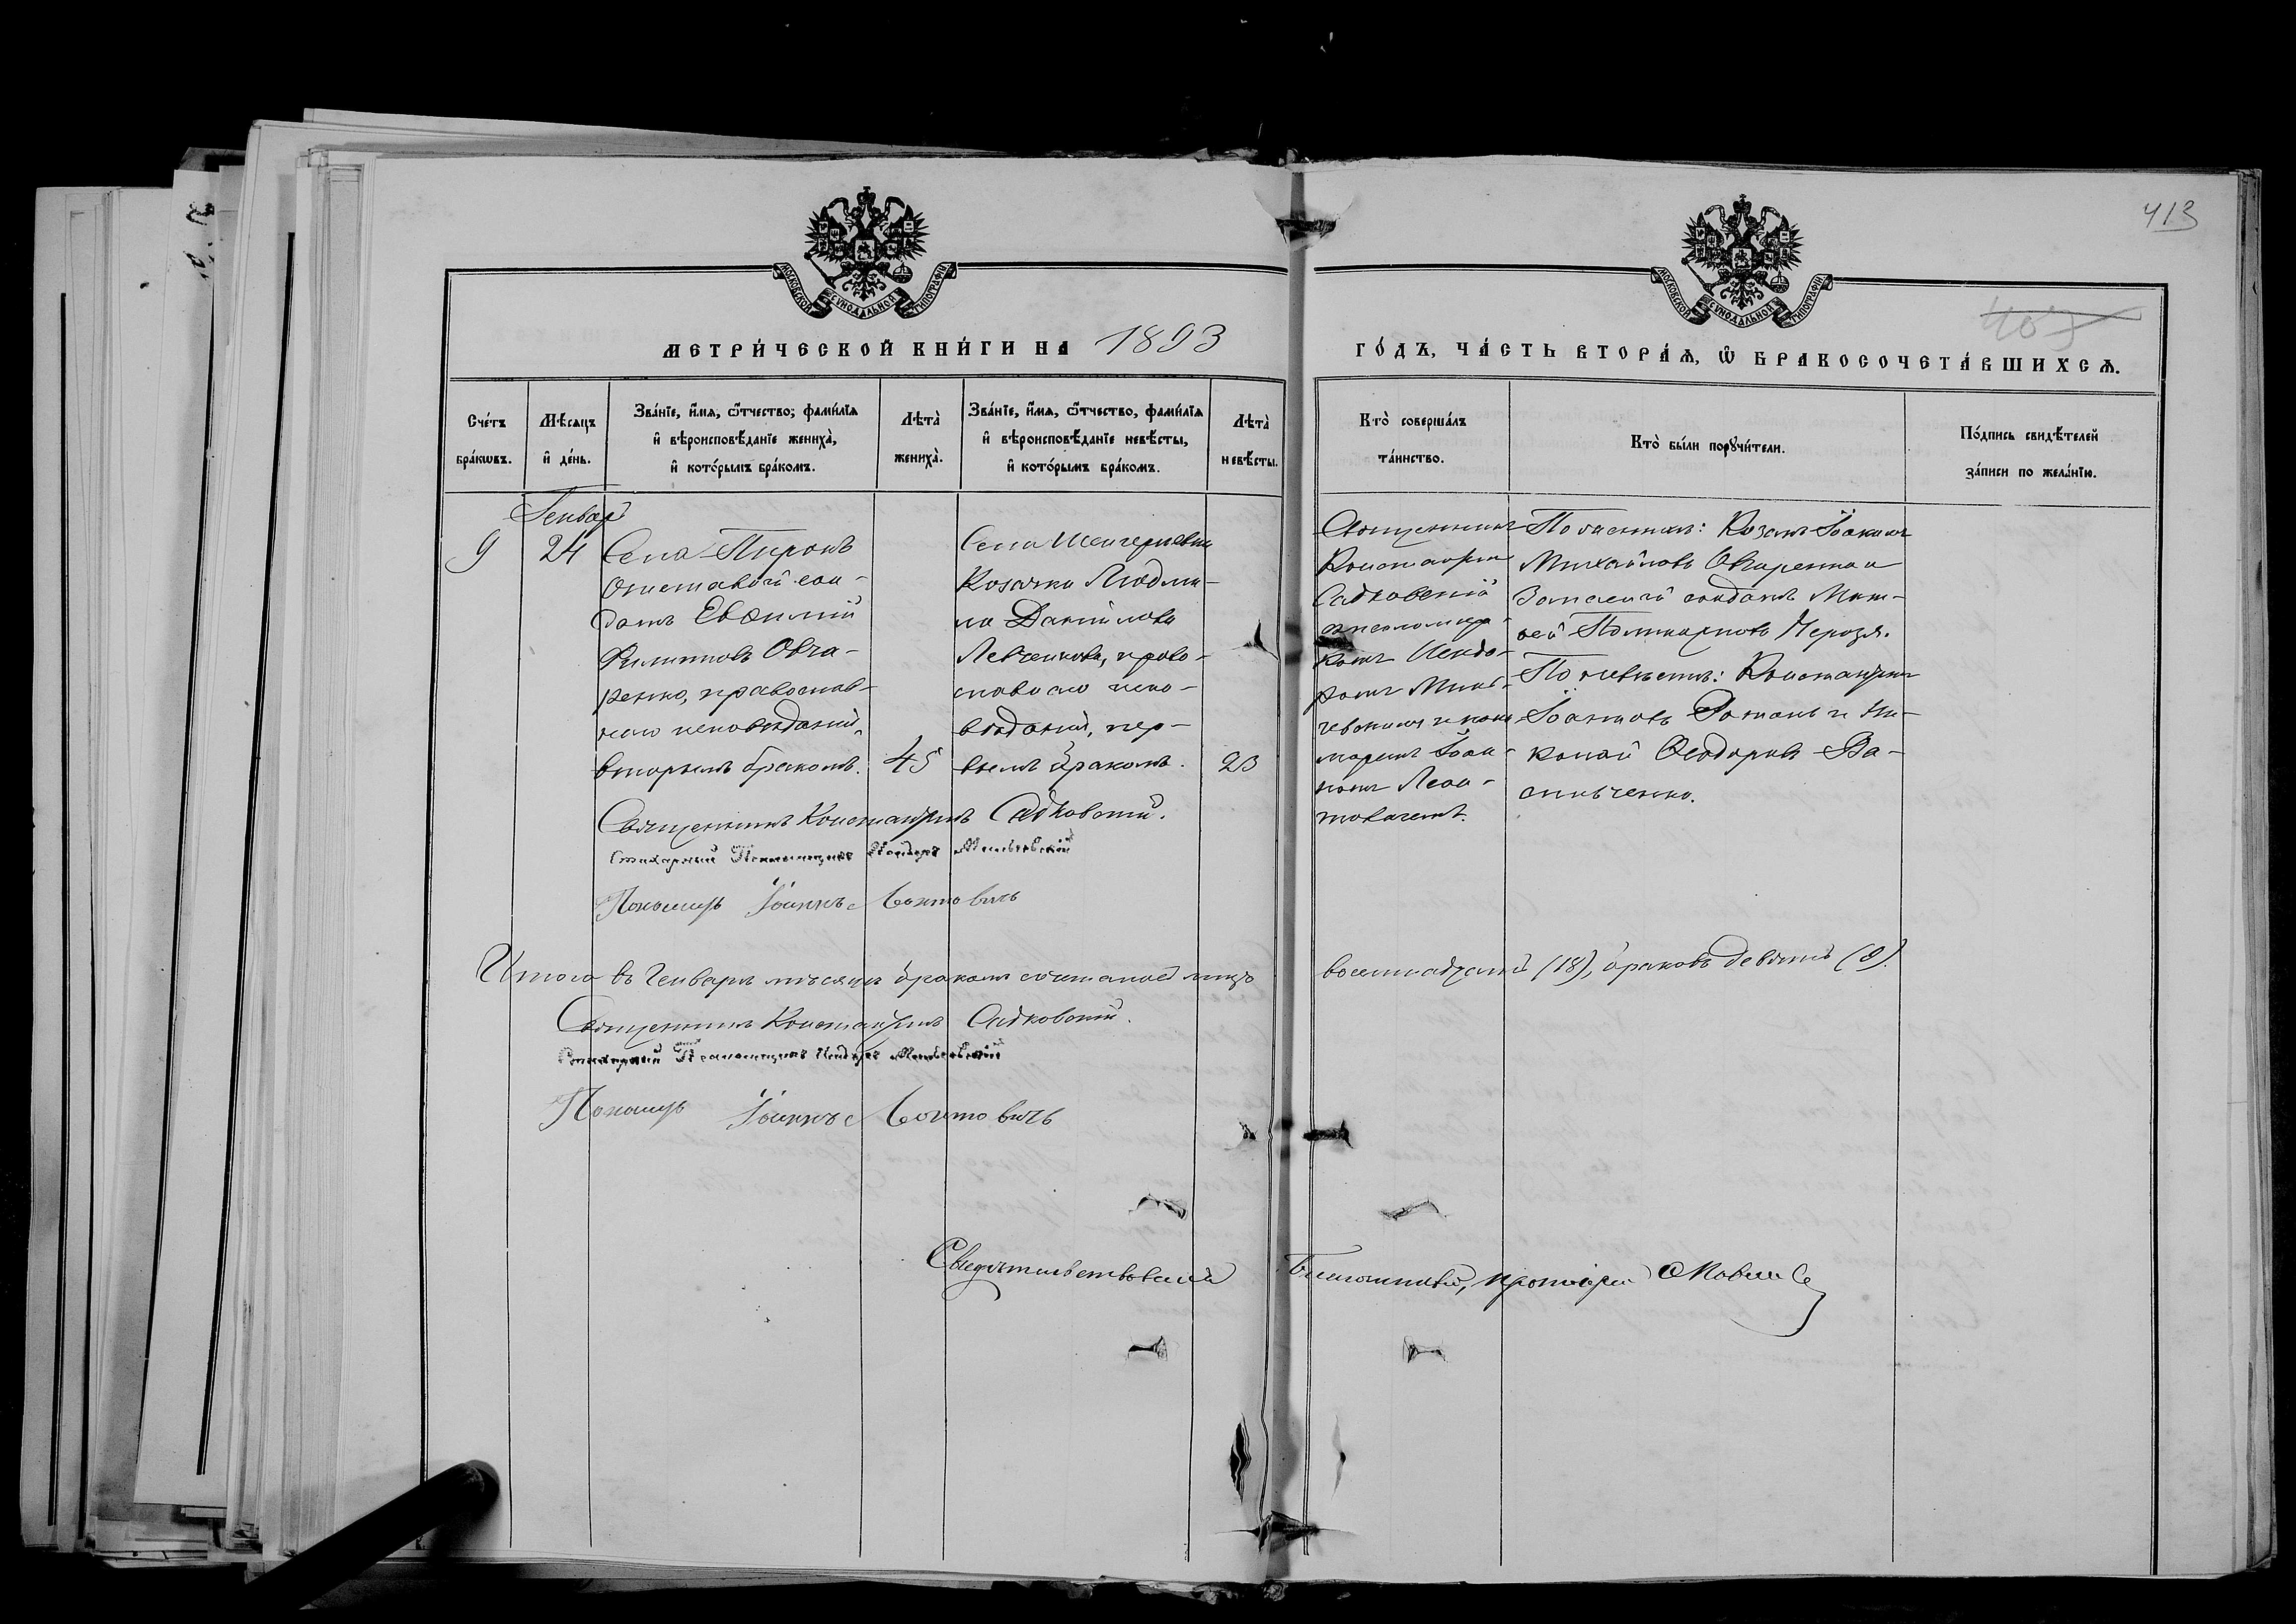 413
МОСКОВСКОЙ СУНОДАЛЬНОЙ ТИПОГРАФІИ
МОСКОВСКОЙ СУНОДАЛЬНОЙ ТИПОГРАФІИ
МЕТРИ́ЧЕСКОЙ КНИ́ГИ НА 1893
ГО́ДЪ, ЧА́СТЬ ВТОРА́Ѧ, Ѡ БРАКОСОЧЕТА́ВШИХСѦ.
Сче́тъ бра́кѡвъ.
Мѣ́сяцъ и де́нь.
Зва́нїе, и́мѧ, ѻ҆́тчество, фами́лїѧ и вѣроисповѣ́данїе жениха̀, и кото́рымъ бра́комъ.
Лѣта̀ жениха̀.
Зва́нїе, и́мѧ, ѻ҆́тчество, фами́лїѧ и вѣроисповѣ́данїе невѣ́сты, и кото́рымъ бра́комъ.
Лѣта̀ невѣ́сты.
Кто̀ соверша́лъ та́инство.
Кто̀ бы́ли порꙋчи́тели.
По́дпись свидѣ́телей за́писи по жела́нїю.
Генвар
9
24
Села Пирокъ
отставной сол-
датъ Евѳимій
Филиповъ Овча-
ренко, православ-
наго исповѣданія,
вторымъ бракомъ.
45
Козачка Людми-
ла Даніилова
Левченкова, право-
славнаго испо-
вѣданія, пер-
вымъ бракомъ.
23
Священникъ
Константинъ
Садковскій
съ псаломщи-
комъ
и поно-
маремъ Іоан-
номъ Леон-
товичемъ.
По женихѣ: Козакъ Іоакимъ
Михайловъ Овчаренко и
Запасный солдатъ
Поликарповъ
По невѣстѣ: Константинъ
Іоанновъ и Ни-
колай Ѳеодоровъ Ва-
сильченко.
Священникъ Константинъ Садковскій.
Стихарный Псаломщикъ
Пономарь Іоаннъ Леонтовичъ
Итого въ Генварѣ мѣсяцѣ бракомъ сочетаное лицъ восемнадцать (18), браковъ девять (9).
Священникъ Константинъ Садковскій.
Стихарный Псаломщикъ
Пономарь Іоаннъ Леонтовичъ
Свидѣтельствовалъ Благочинный, протоіерей